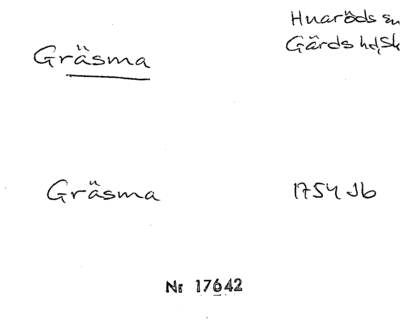 Huaröds sn
Gärds hd, Sk
Gräsma
Gräsma
1754 Jb
Nr 17642